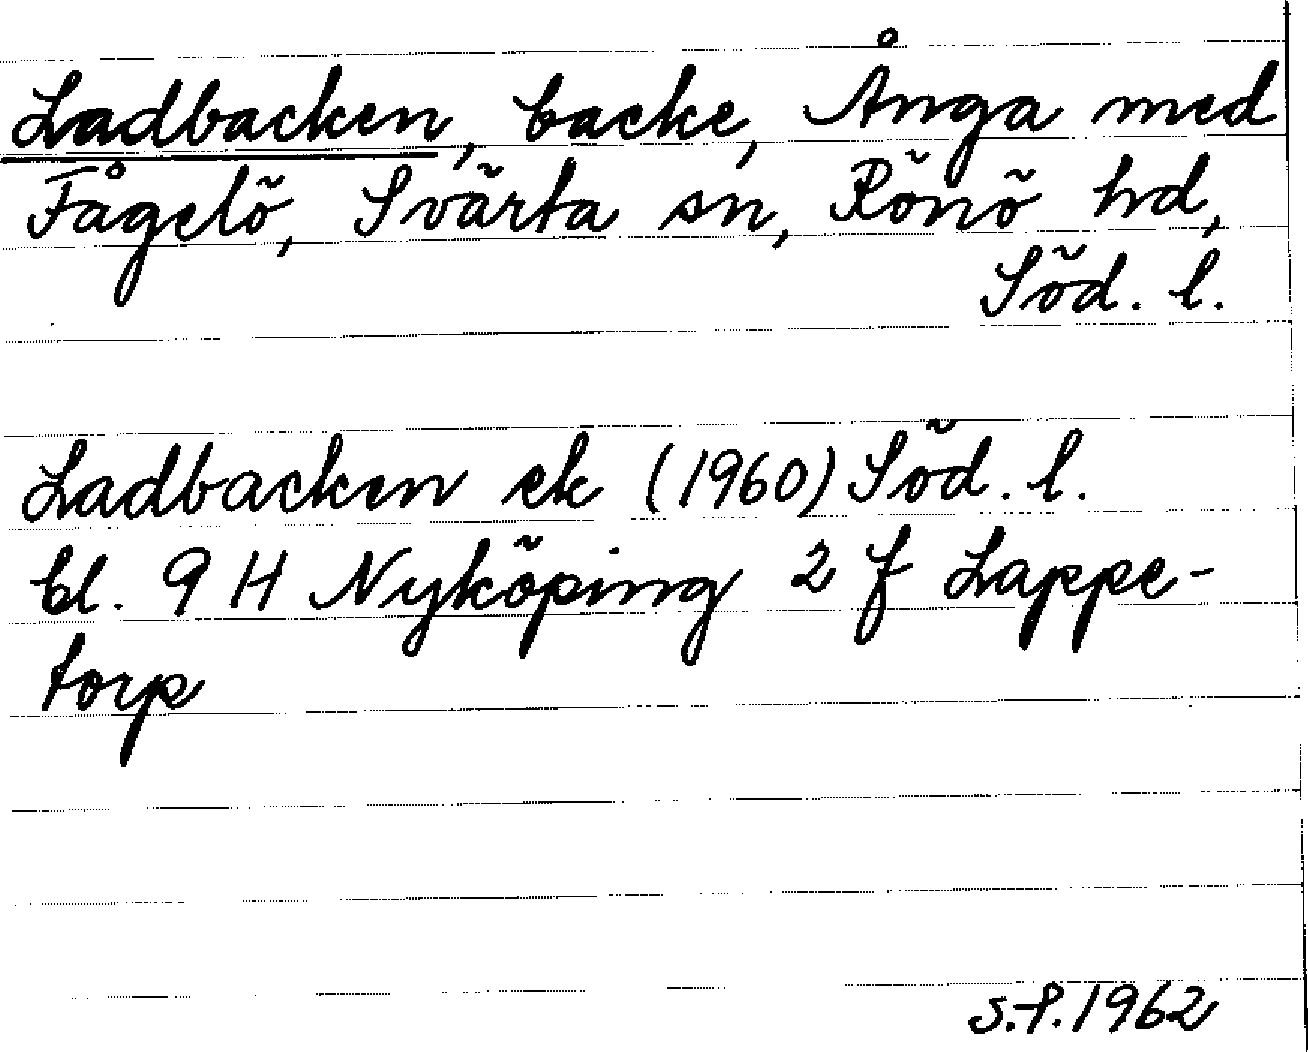 Ladbacken, backe, Ånga med
Fågelö, Svärta sn, Rönö hd,
Söd. l.
Ladbacken ek (1960) Söd. l.
bl. 9 H Nyköping 2 f Lappe-
torp
S.P. 1962